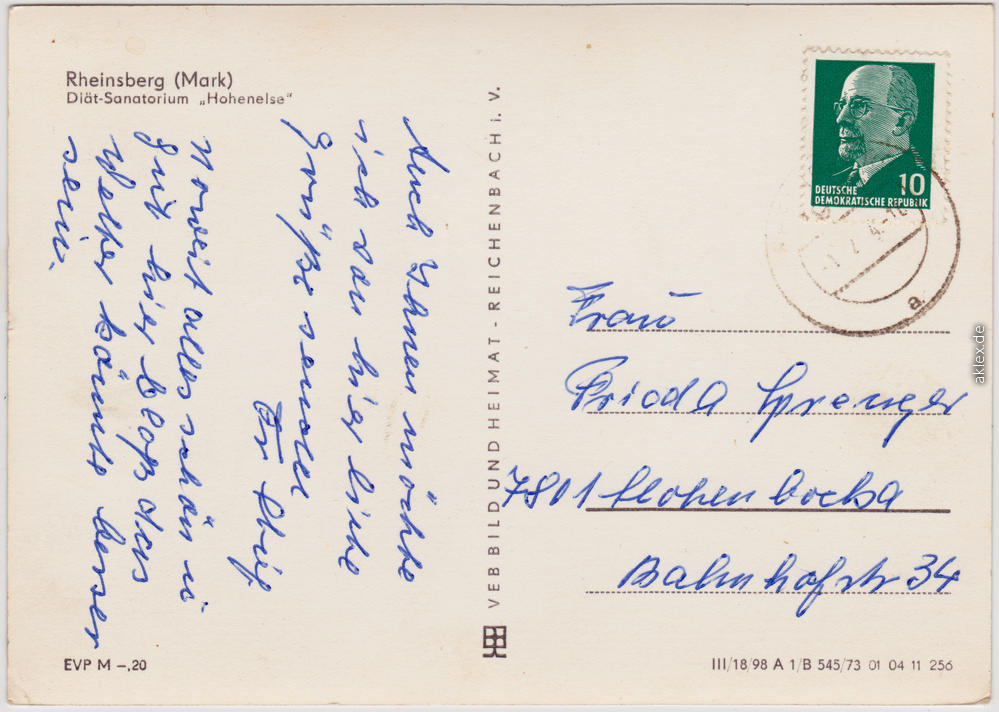 Rheinsberg (Mark)
Diät-Sanatorium „Hohenelse“
Auch Ihnen möchte
ich von hier liebe
Grüße senden
Fr
soweit alles schön u
gut hier bloß das
Wetter könnte besser
sein.
VEB BILD UND HEIMAT - REICHENBACH i. V.
DEUTSCHE
DEMOKRATISCHE REPUBLIK
10
a
Frau
Frieda Sprenger
7801 Hohenbocka
Bahnhofstr 34
EVP M –,20
III/18/98 A 1/B 545/73 01 04 11 256
aklex.de